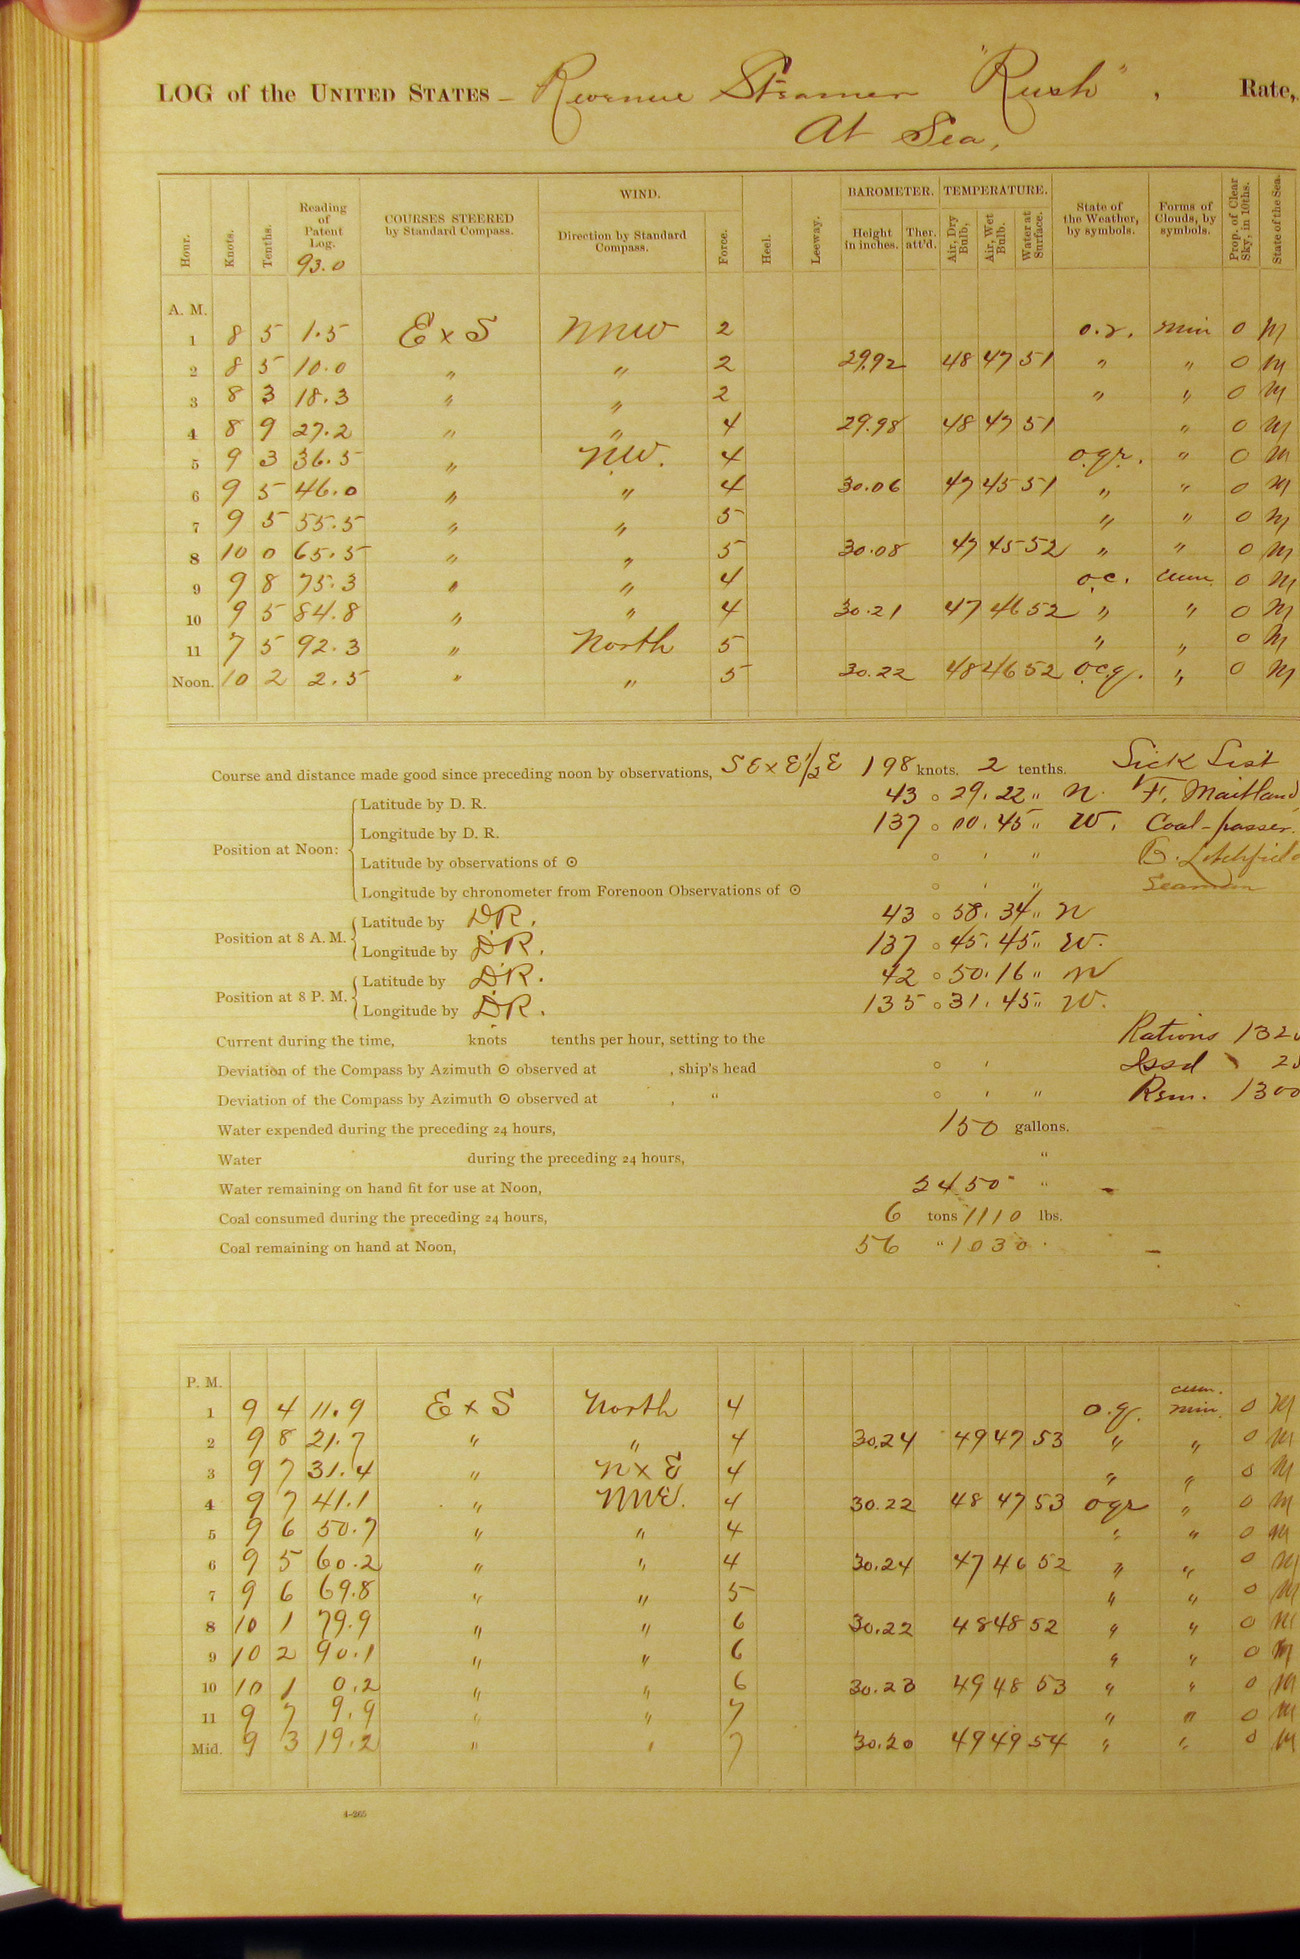 LOG of the UNITED STATES – Revenue Steamer "Rush", Rate,
At Sea,
Hour. Knots. Tenths. Reading of Patent Log. 93.0 COURSES STEERED by Standard Compass. WIND. Direction by Standard Compass. Force. Heel. Leeway. BAROMETER. Height in inches. Ther. att'd. TEMPERATURE. Air, Dry Bulb, Air, Wet Bulb. Water at Surface. State of the Weather, by symbols. Forms of Clouds, by symbols. Prop. of Clear Sky, in 10ths. State of the Sea.
A. M.
1 8 5 1.5 E x S NNW 2 o.r. nim 0 M
2 8 5 10.0 " " 2 29.92 48 47 51 " " 0 M
3 8 3 18.3 " " 2 " " 0 M
4 8 9 27.2 " " 4 29.98 48 47 51 " 0 M
5 9 3 36.5 " NW. 4 o.g.r. " 0 M
6 9 5 46.0 " " 4 30.06 47 45 51 " " 0 M
7 9 5 55.5 " " 5 " " 0 M
8 10 0 65.5 " " 5 30.08 47 45 52 " " 0 M
9 9 8 75.3 " " 4 o.c. cum. 0 M
10 9 5 84.8 " " 4 30.21 47 46 52 " " 0 M
11 7 5 92.3 " North 5 " " 0 M
Noon. 10 2 2.5 " " 5 30.22 48 46 52 o.c.g. " 0 M
Course and distance made good since preceding noon by observations, SE x E 1/2 E 198 knots. 2 tenths. Sick List
Latitude by D. R. 43 ° 29 ' 22 " N. F. Maitland
Longitude by D. R. 137 ° 00 ' 45 " W. Coal-passer.
Position at Noon:
Latitude by observations of ⊙ ° ' " Litchfield
Longitude by chronometer from Forenoon Observations of ⊙ ° ' " Seaman
Position at 8 A. M. Latitude by DR. 43 ° 58 ' 34 " N
Longitude by DR. 137 ° 45 ' 45 " W.
Position at 8 P. M. Latitude by DR. 42 ° 50 ' 16 " N
Longitude by DR. 135 ° 31 ' 45 " W.
Current during the time, knots tenths per hour, setting to the Rations 132
Deviation of the Compass by Azimuth ⊙ observed at , ship's head ° ' Issd 2
Deviation of the Compass by Azimuth ⊙ observed at , " ° ' " Rem. 1300
Water expended during the preceding 24 hours, 150 gallons.
Water during the preceding 24 hours, "
Water remaining on hand fit for use at Noon, 2450 "
Coal consumed during the preceding 24 hours, 6 tons 1110 lbs.
Coal remaining on hand at Noon, 56 " 1030
P. M. cum.
1 9 4 11.9 E x S North 4 o.g. nim 0 M
2 9 8 21.7 " " 4 30.24 49 47 53 " " 0 M
3 9 7 31.4 " N x E 4 " " 0 M
4 9 7 41.1 " NNE. 4 30.22 48 47 53 ogr " 0 M
5 9 6 50.7 " " 4 " " 0 M
6 9 5 60.2 " " 4 30.24 47 46 52 " " 0 M
7 9 6 69.8 " " 5 " " 0 M
8 10 1 79.9 " " 6 30.22 48 48 52 " " 0 M
9 10 2 90.1 " " 6 " " 0 M
10 10 1 0.2 " " 6 30.23 49 48 53 " " 0 M
11 9 7 9.9 " " 7 " " 0 M
Mid. 9 3 19.2 " " 7 30.20 49 49 54 " " 0 M
4-265